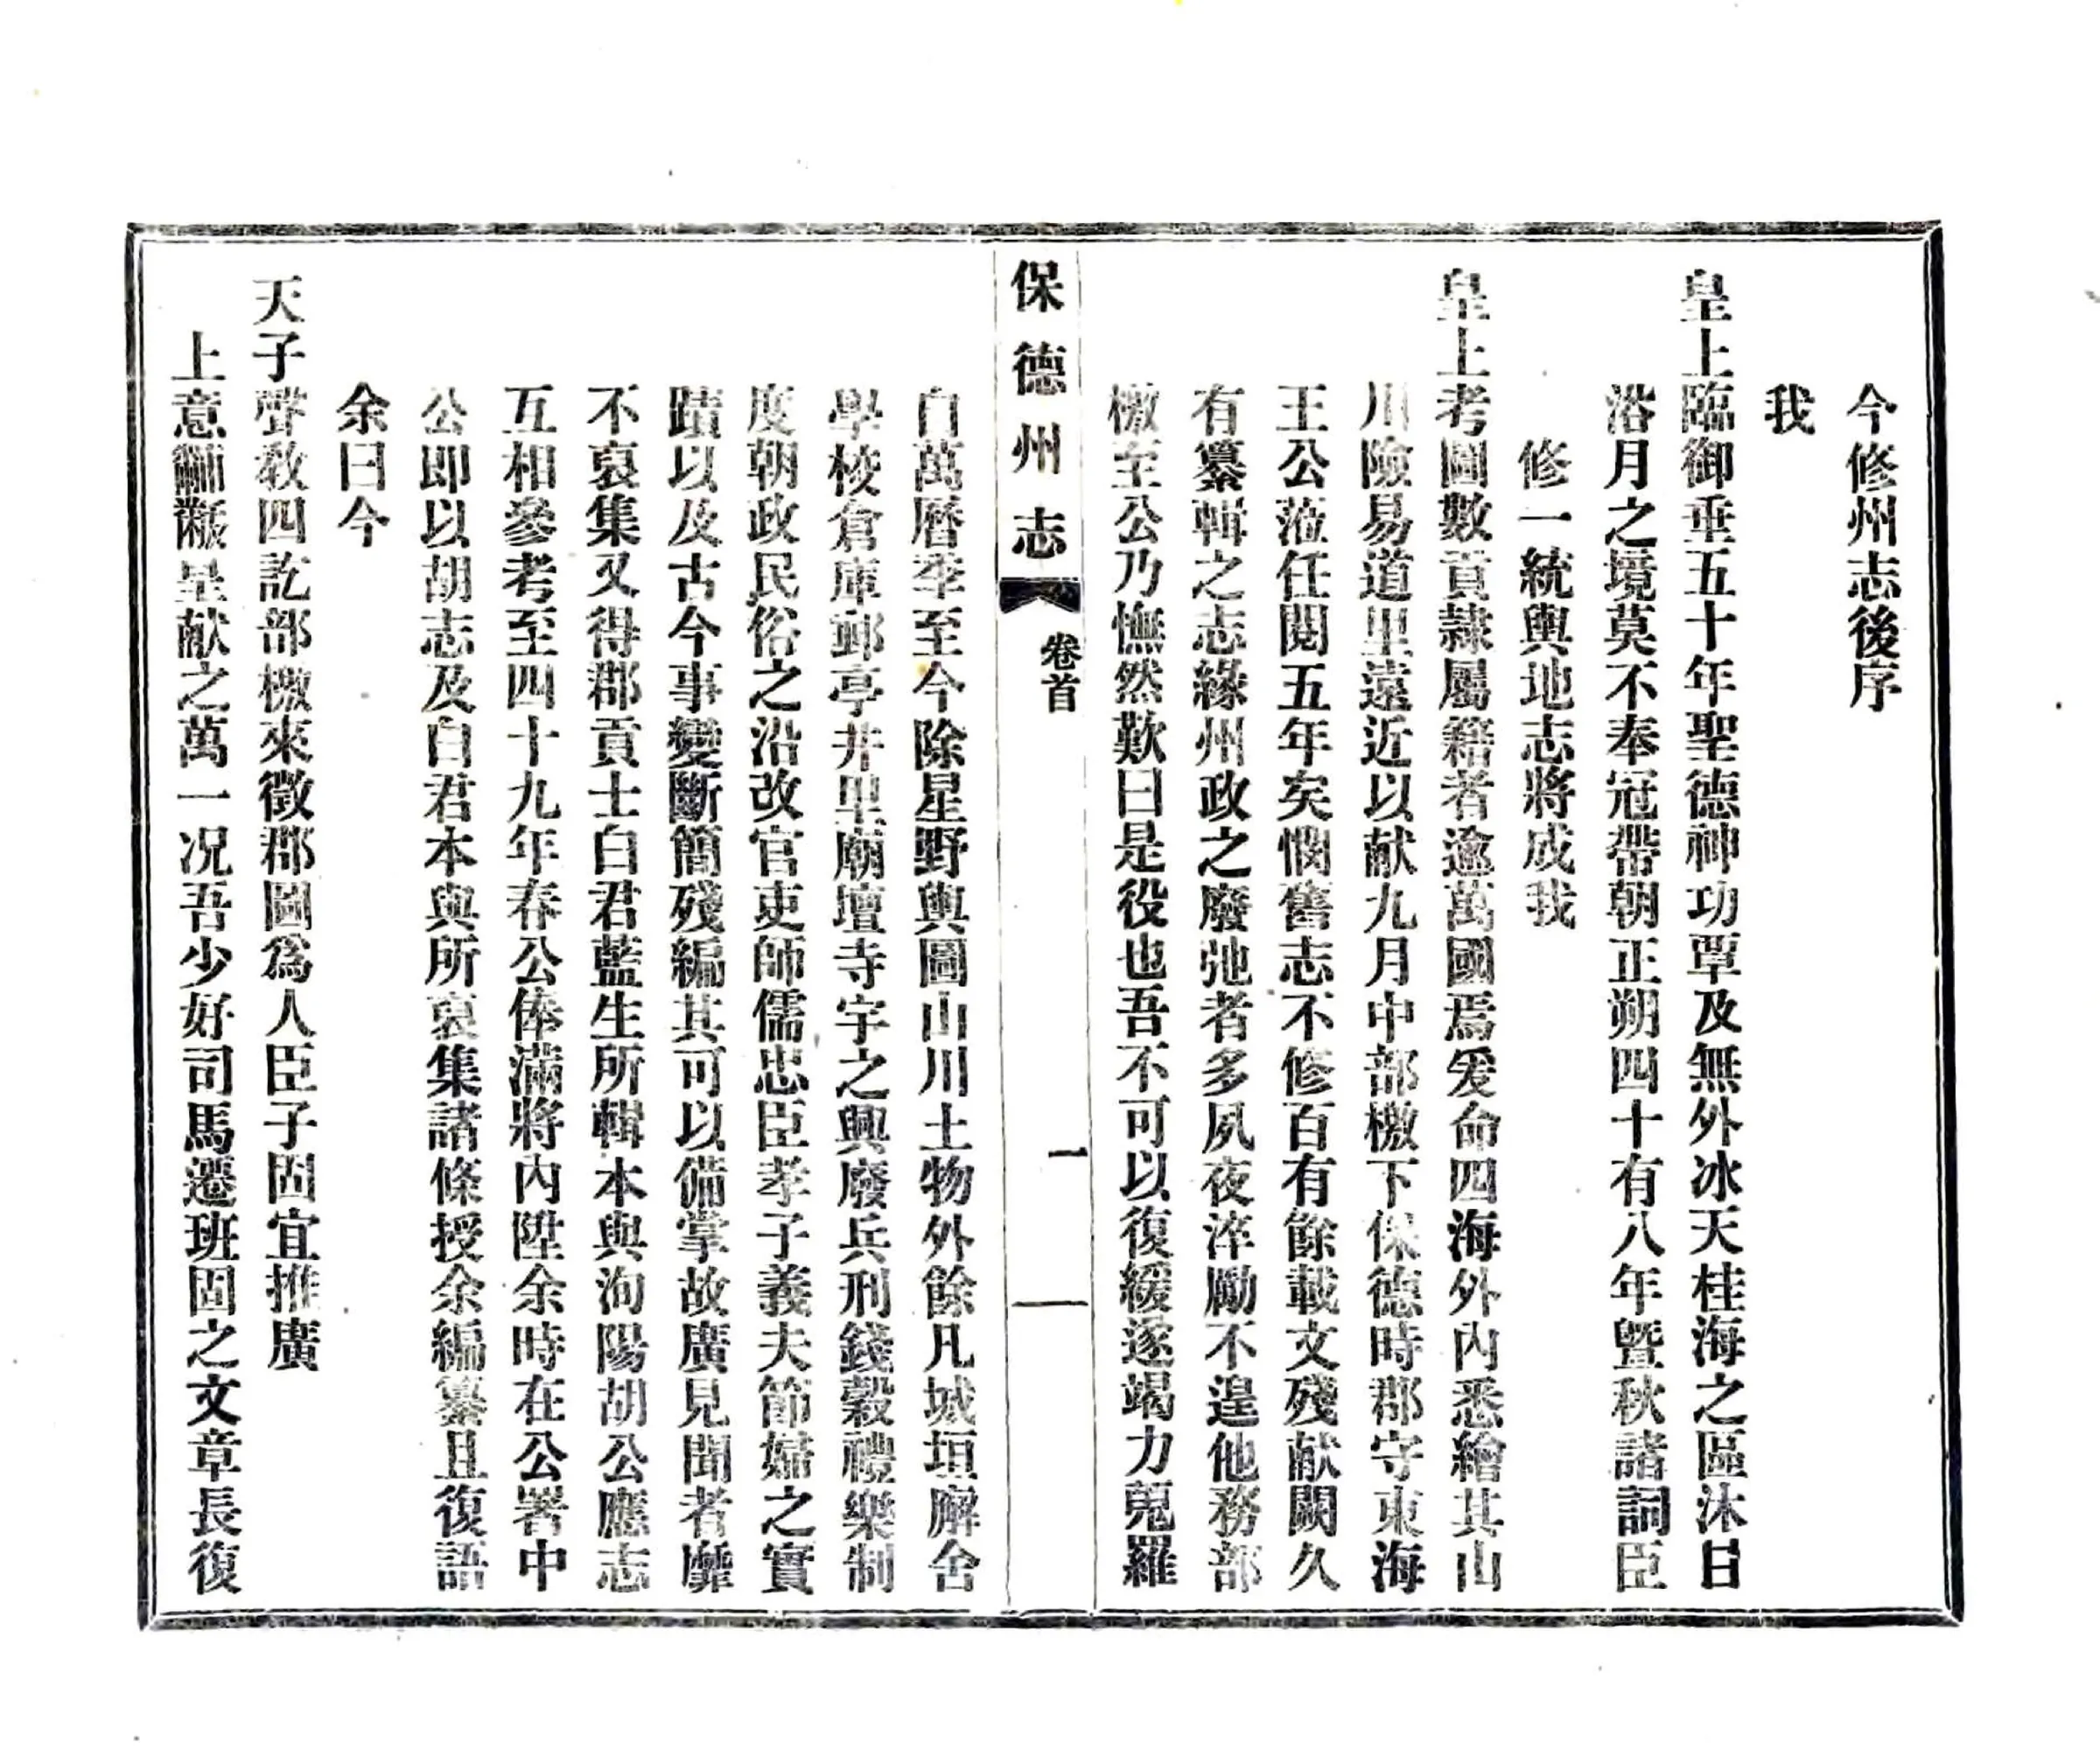 今修州志後序
我
皇上臨御垂五十年聖德神功覃及無外冰天桂海之區沐日
浴月之境莫不奉冠帶朝正朔四十有八年曁秋諸詞臣
修一統輿地志將成我
皇上考圖數貢隷屬籍者逾萬國焉爰命四海外內悉繪其山
川險易道里遠近以献九月中部檄下保德時郡守東海
王公蒞任閱五年矣憫舊志不修百有餘載文殘献闕久
有纂輯之志緣州政之廢弛者多夙夜淬勵不遑他務部
檄至公乃憮然歎曰是役也吾不可以復緩遂竭力蒐羅
保德州志
卷首
一
自萬曆季至今除星野輿圖山川土物外餘凡城垣廨舍
學校倉庫郵亭井里廟壇寺宇之興廢兵刑錢穀禮樂制
度朝政民俗之沿改官吏師儒忠臣孝子義夫節婦之實
蹟以及古今事變斷簡殘編其可以備掌故廣見聞者靡
不裒集又得郡貢士白君藍生所輯本與洵陽胡公應志
互相參考至四十九年春公俸滿將內陞余時在公署中
公即以胡志及白君本與所裒集諸條授余編纂且復語
余曰今
天子聲敎四訖部檄來徵郡圖爲人臣子固宜推廣
上意黼黻星献之萬一况吾少好司馬遷班固之文章長復